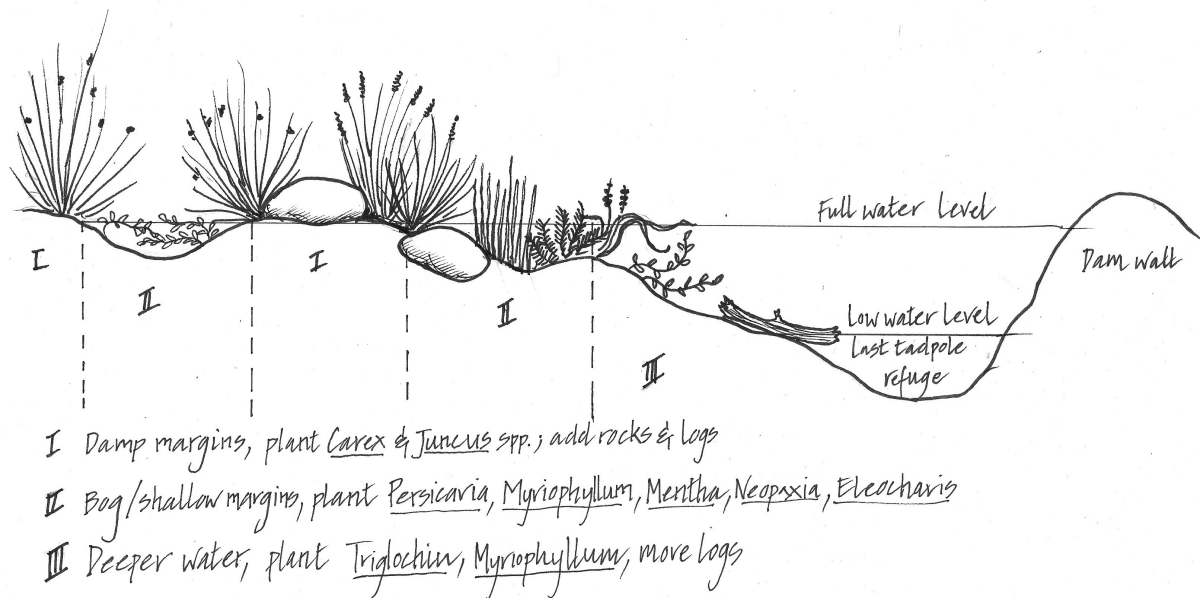 Full water level
Dam wall
I
II
I
II
III
Low water level
last tadpole
refuge
I Damp margins, plant Carex & Juncus spp.; add rocks & logs
II Bog/shallow margins, plant Persicaria, Myriophyllum, Mentha, Neopaxia, Eleocharis
III Deeper water, plant Triglochin, Myriophyllum, more logs